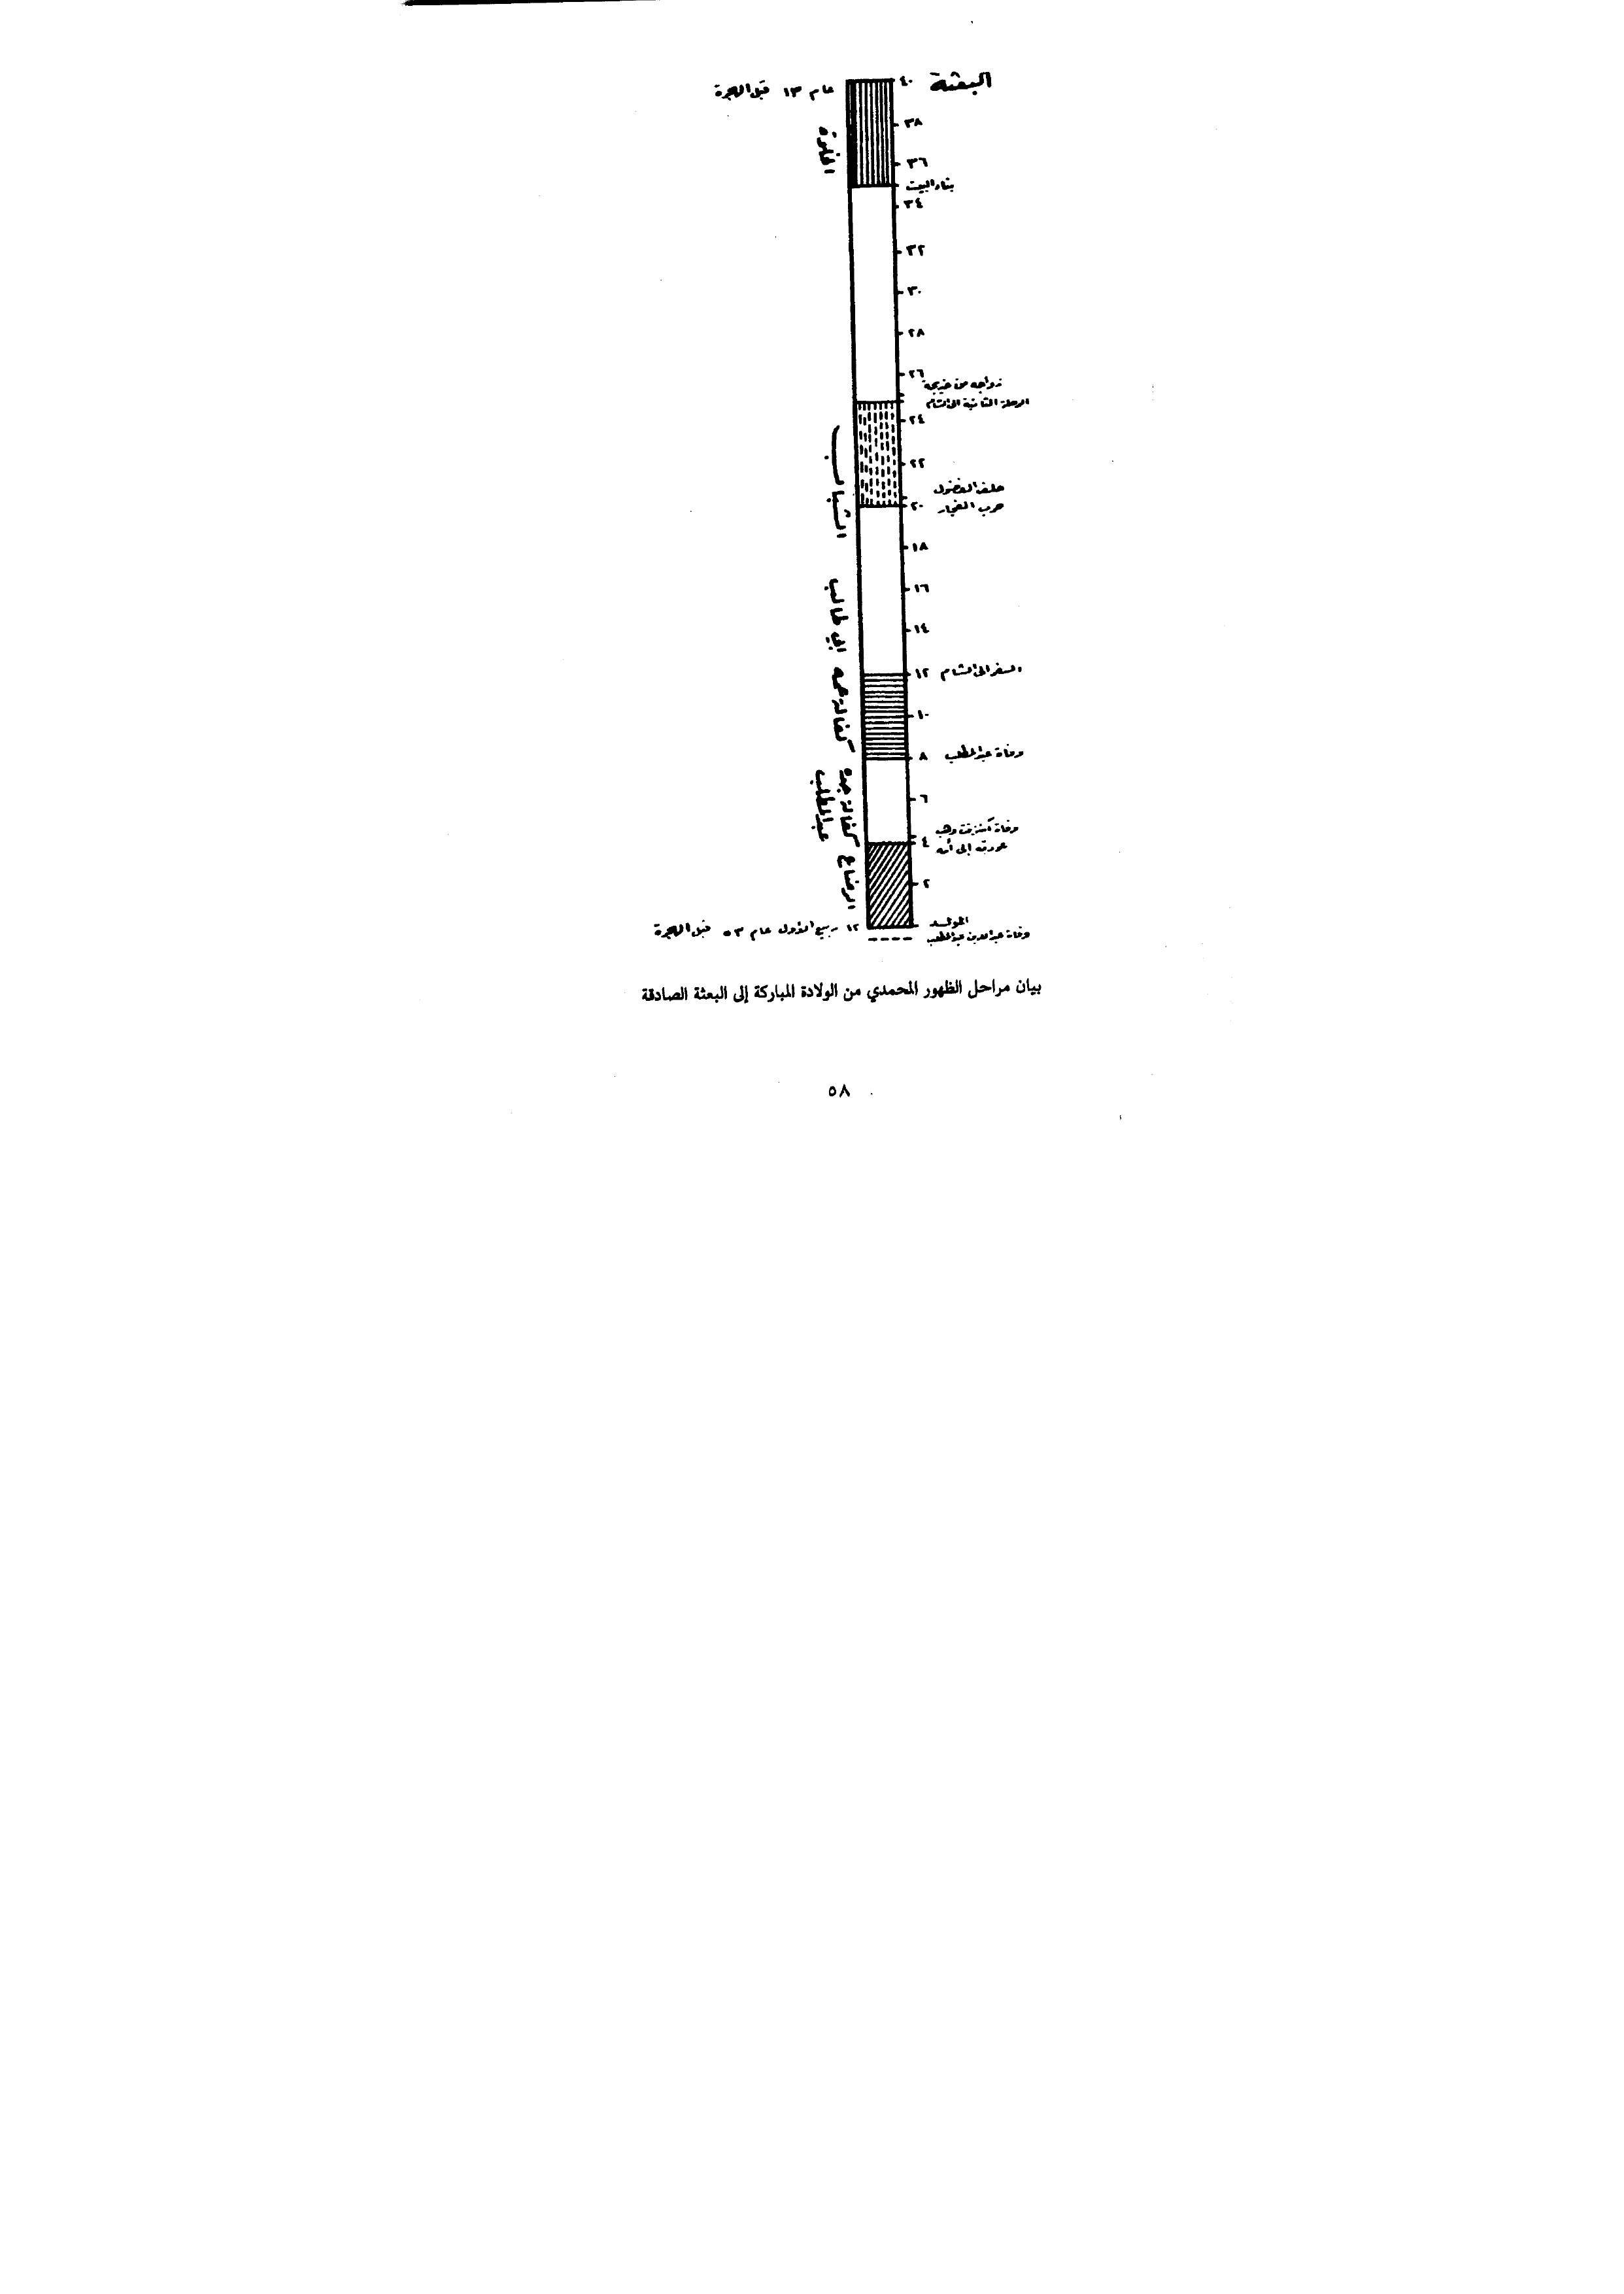 البعثة ٤٠ عام ١٣ قبل الهجرة
٣٨
الخلوة
٣٦
بناء البيت
٣٤
٣٢
٣٠
٢٨
٢٦
زواجه من خديجة
الرحلة الثانية الى الشام
٢٤
٢٢
الشباب
حلف الفضول
حرب الفجار ٢٠
١٨
١٦
١٤
كفالة عمه ابي طالب
السفر الى الشام ١٢
١٠
وفاة عبد المطلب ٨
كفالة جده
عبد المطلب
٦
وفاة آمنة بنت وهب
عودته إلى أمه ٤
الرضاع
٢
المولد
١٢ ربيع الأول عام ٥٣ قبل الهجرة
وفاة عبد الله بن عبد المطلب
بيان مراحل الظهور المحمدي من الولادة المباركة إلى البعثة الصادقة
٥٨